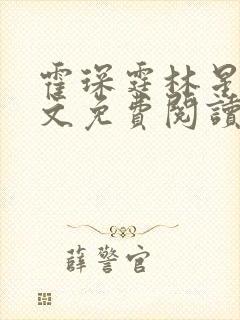 霍琛霆林星
文免費閱讀
薛警官